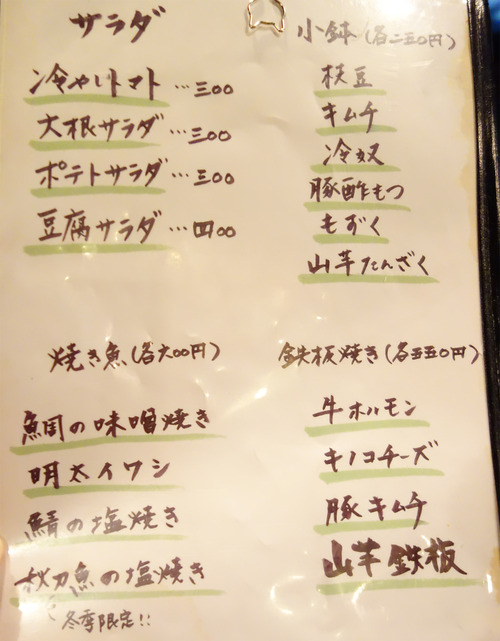 サラダ
冷やしトマト…三〇〇
大根サラダ…三〇〇
ポテトサラダ…三〇〇
豆腐サラダ…四〇〇
小鉢(各二五〇円)
枝豆
キムチ
冷奴
豚酢もつ
もずく
山芋たんざく
焼き魚(各六〇〇円)
鯛の味噌焼き
明太イワシ
鯖の塩焼き
秋刀魚の塩焼き
冬季限定!!
鉄板焼き(各五五〇円)
牛ホルモン
キノコチーズ
豚キムチ
山芋鉄板